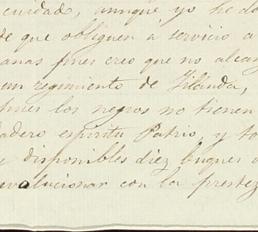 cuidado, aunque yo he de
de que obliguen a servicio a
anas pues creo que no alcan
un regimiento de Irlanda,
pues los negros no tienen
dadero espiritu Patrio, y to
disponibles diez buques a
evolucionar con la prestez